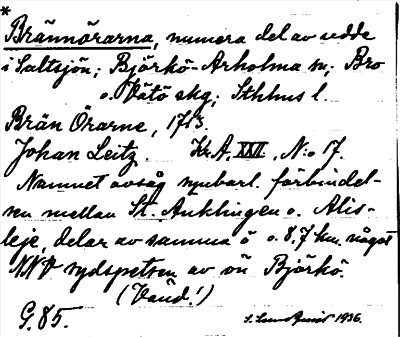 *
Brännörarna, numera del av udde
i Saltsjön; Björkö-Arholma sn; Bro
o. Vätö skg; Sthlms l.
Brän Örarne, 1713.
Johan Leitz. Kr.A, XXII, N:o 17.
Namnet avsåg uppenbarl. förbindel-
sen mellan St. Ancklingen o. Alis-
leje, delar av samma ö o. 8,7 km. något
NNV sydspetsen av ön Björkö.
(Vänd!)
G. 85. 1936.